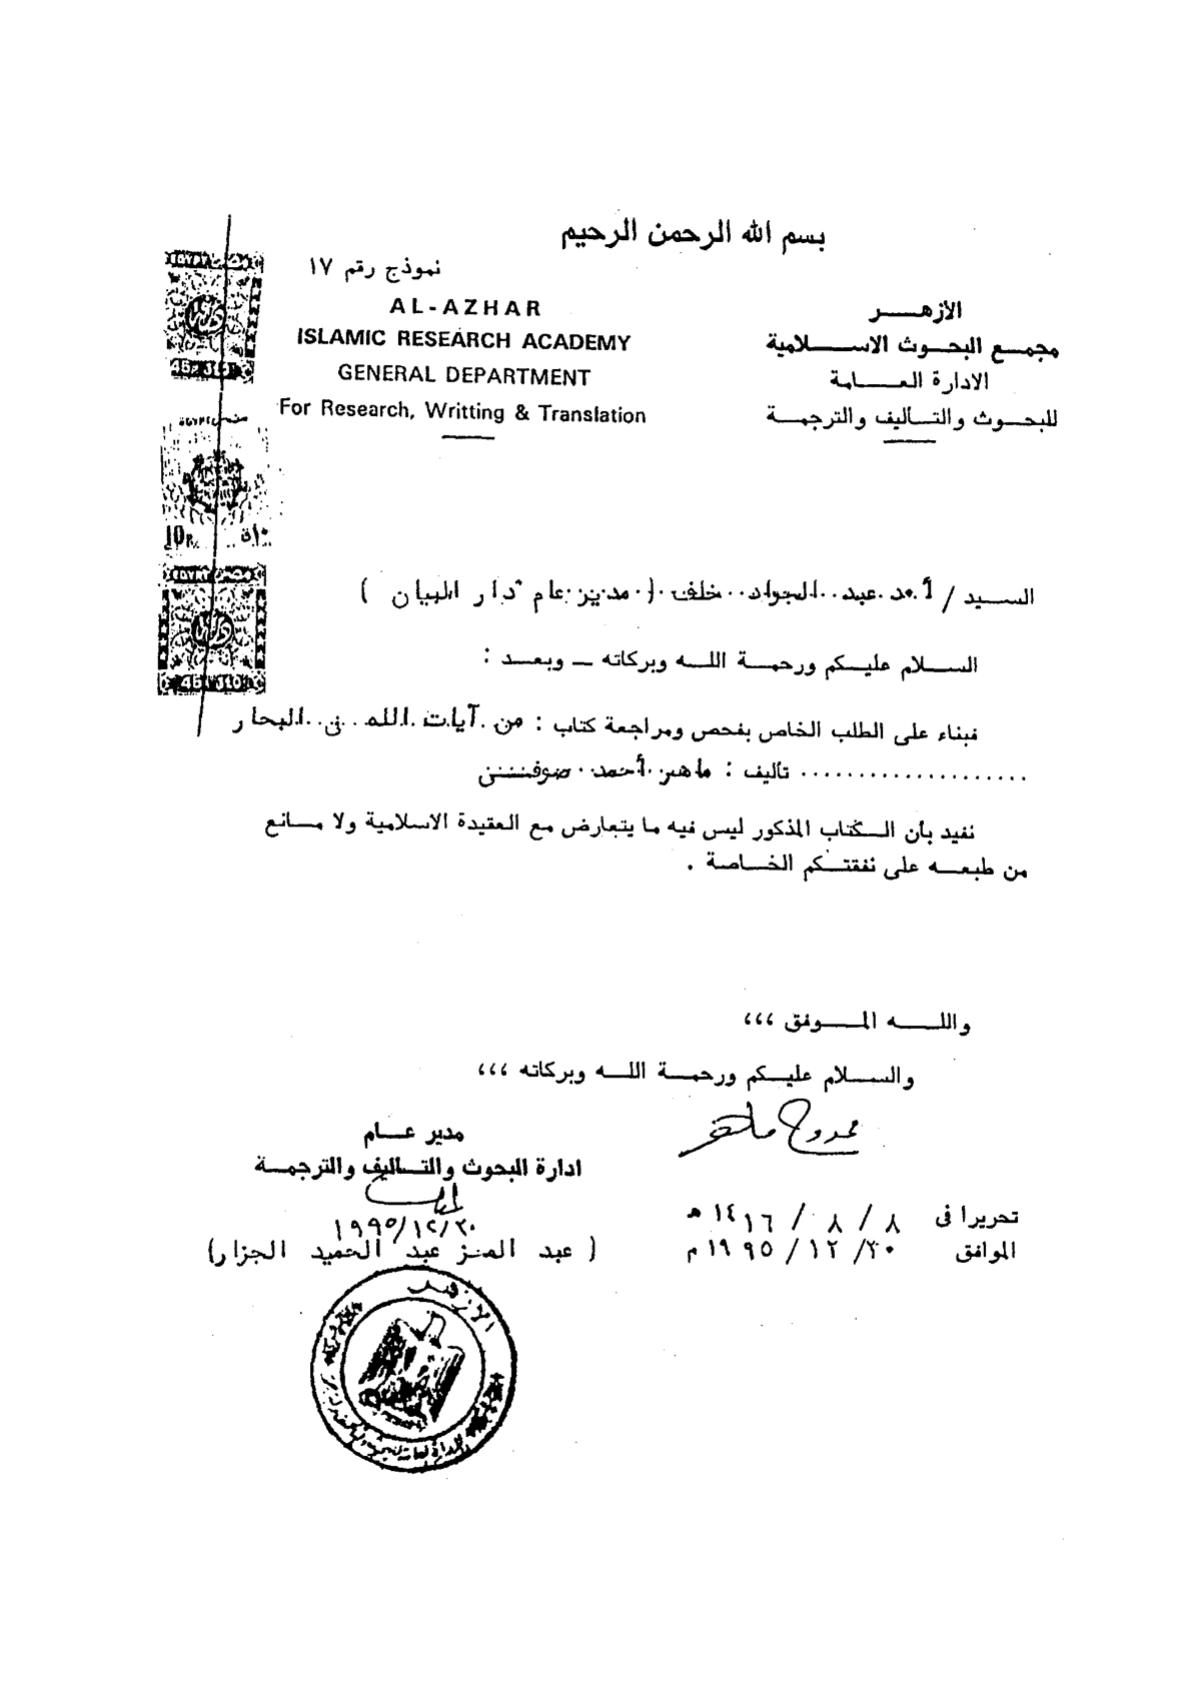 بسم الله الرحمن الرحيم
نموذج رقم ١٧
AL-AZHAR
ISLAMIC RESEARCH ACADEMY
GENERAL DEPARTMENT
For Research, Writting & Translation
الأزهر
مجمع البحوث الاسلامية
الادارة العامة
للبحوث والتأليف والترجمة
السيد / أ.مد عبد الجواد خلف ( مدير عام " دار البيان )
السلام عليكم ورحمة الله وبركاته ــ وبعد :
فبناء على الطلب الخاص بفحص ومراجعة كتاب : من آيات الله فى البحار
.................... تأليف : ماهر أحمد صوفى
نفيد بأن الكتاب المذكور ليس فيه ما يتعارض مع العقيدة الاسلامية ولا مانع
من طبعه على نفقتكم الخاصة .
والله الموفق ،،،
والسلام عليكم ورحمة الله وبركاته ،،،
مدير عام
ادارة البحوث والتأليف والترجمة
١٩٩٥/١٢/٣٠
( عبد المعز عبد الحميد الجزار)
تحريرا فى ٨ / ٨ / ١٤١٦ هـ
الموافق ٣٠/ ١٢ / ١٩٩٥ م
الأزهر